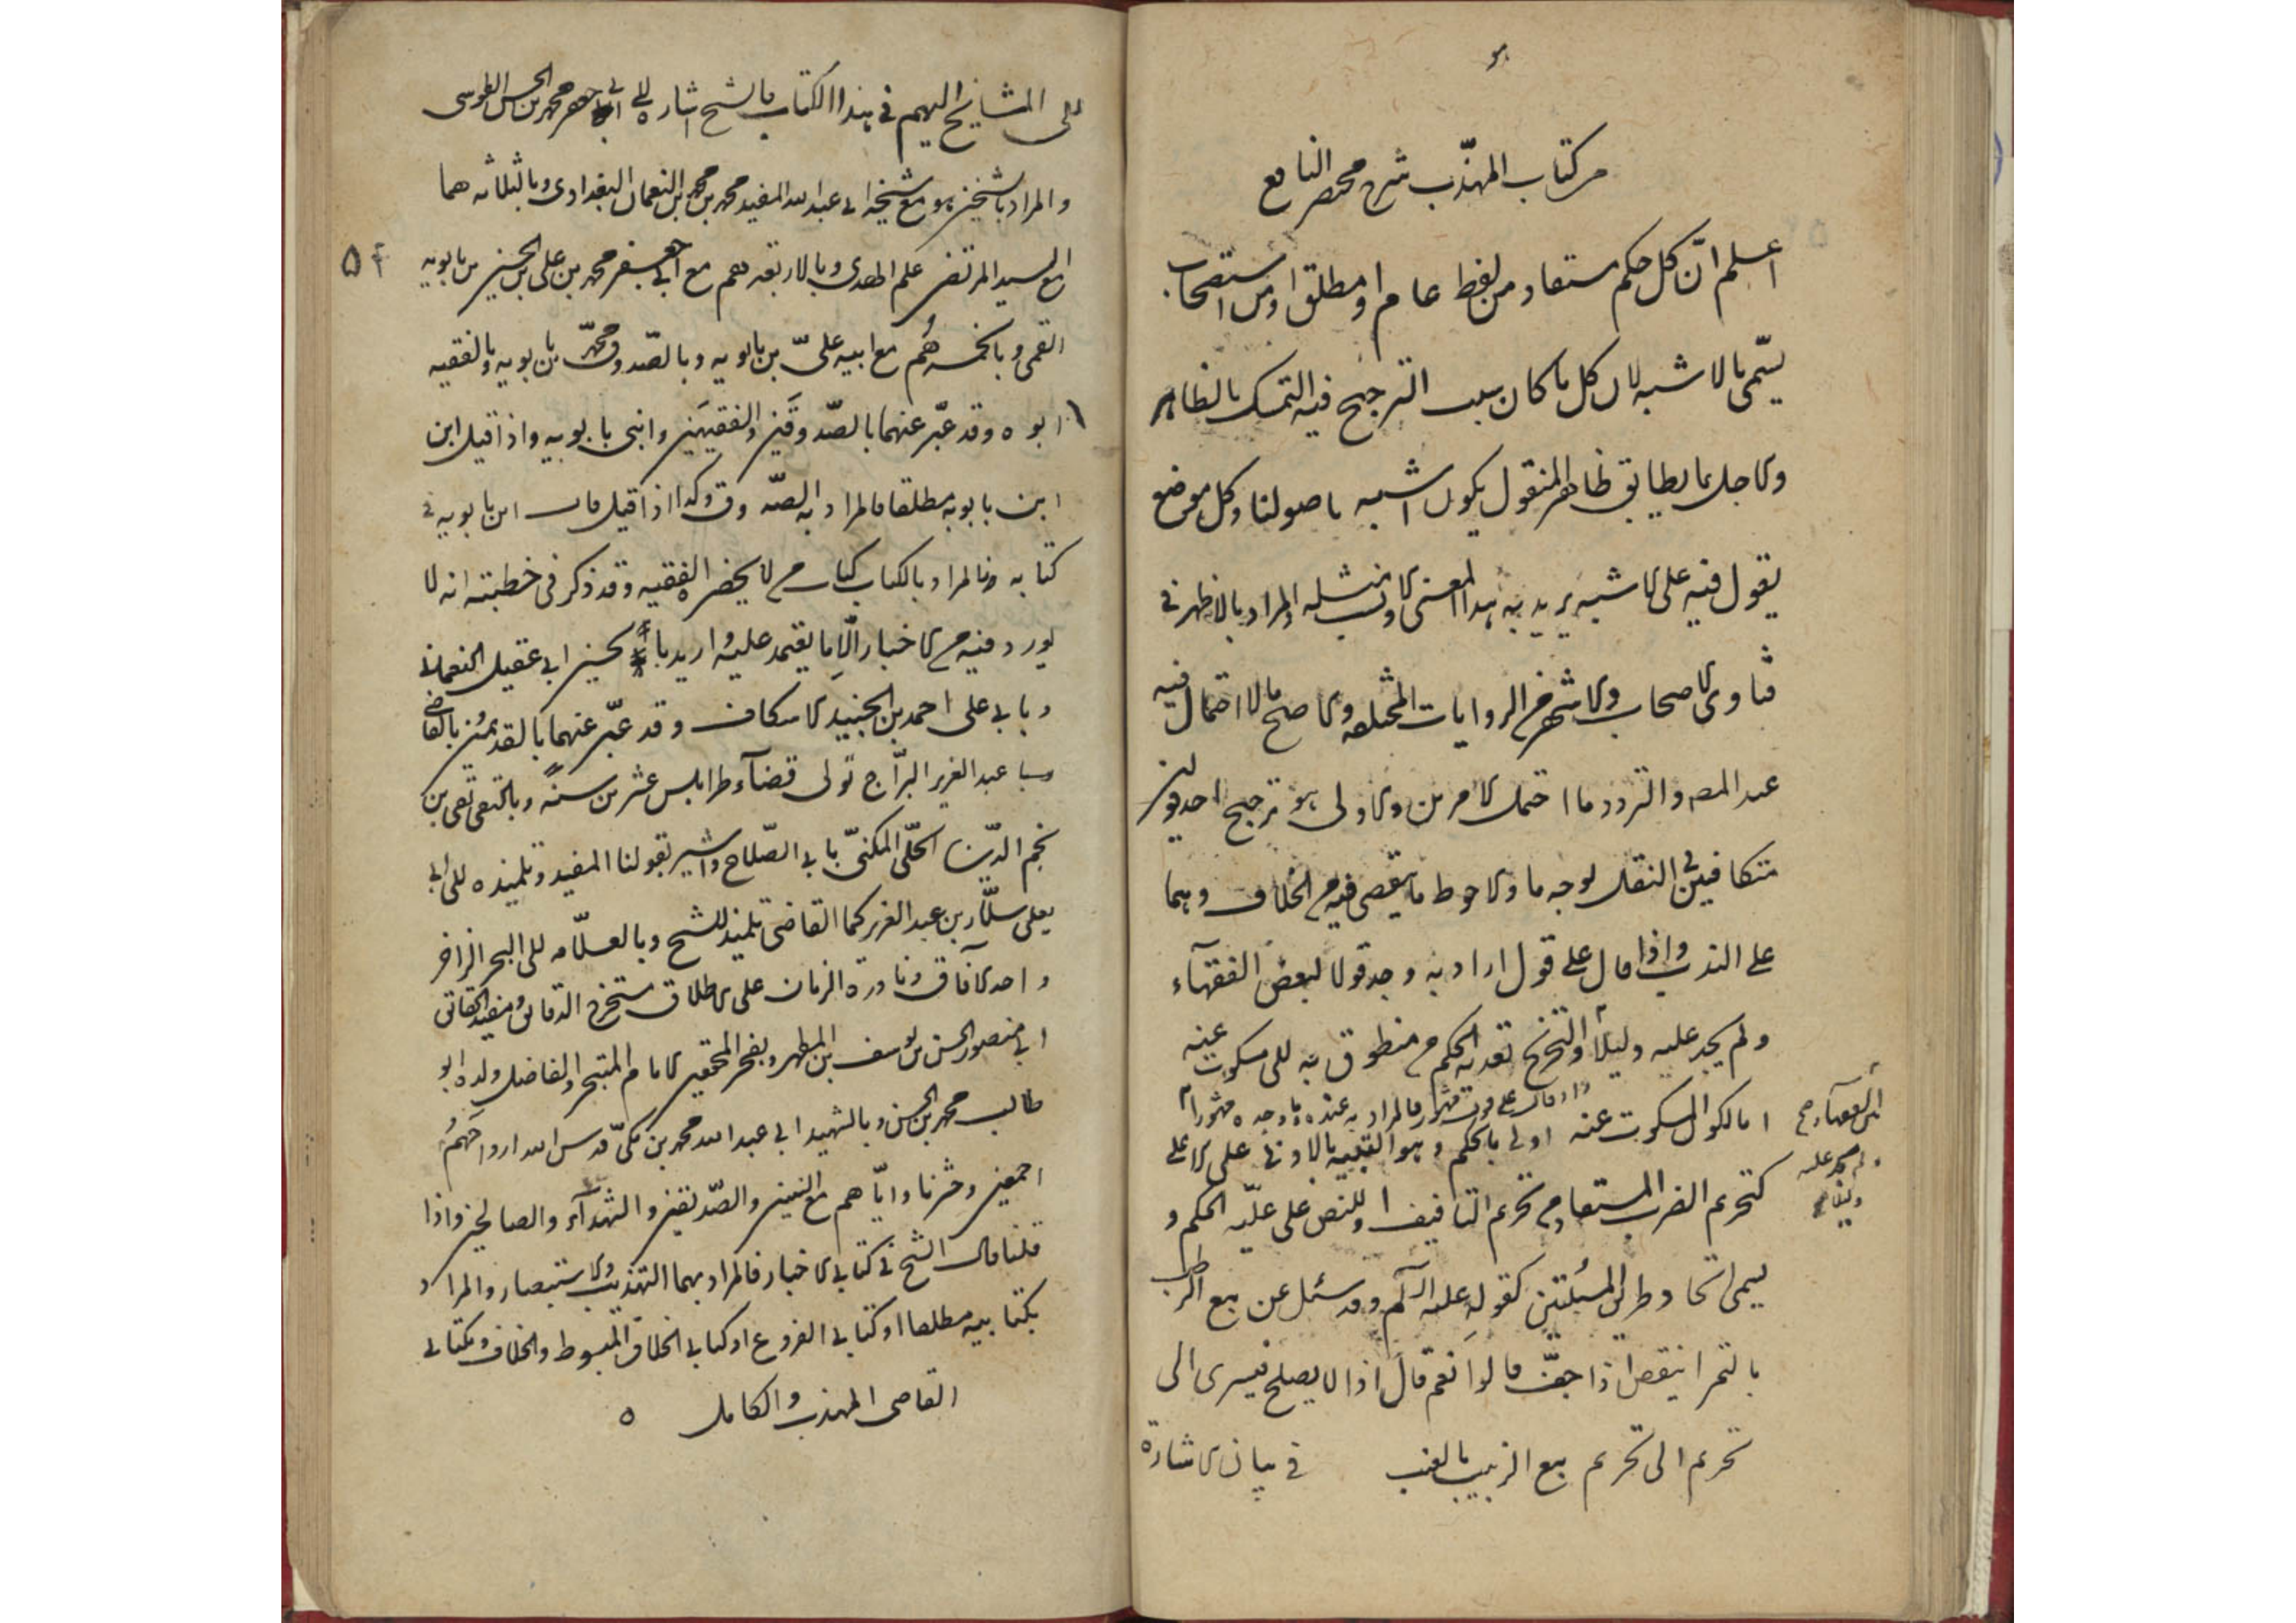 هو
من كتاب المهذّب شرح مختصر النافع
اعلم انّ كل حكم مستفاد من لفظ عام او مطلق او من استصحاب
يسمّى بالاشبه لان كل ما كان سبب الترجيح فيه التمسك بالظاهر
والاخذ بما يطابق ظاهر المنقول يكون اشبه باصولنا وكل موضع
يقول فيه على الاشبه يريد به هذا المعنى والانسب مثله والمراد بالاظهر في
فتاوى الاصحاب والاشهر في الروايات المختلفة والاصح ما لا احتمال فيه
عند المصـ والتردد ما احتمل الامرين والاولى هو ترجيح احد القولين
متكافيين في النقل لوجه ما والاحوط ما يقصى فيه من الخلاف وهما
على الندب واذا قال على قول اراد به وجد قولا لبعض الفقهاء
ولم يجد عليه دليلاً والتخريج تعدية الحكم من منطوق به الى مسكوت عنه
واذا قال على قول مشهور فالمراد به عنده ما وجده مشهورا
اما لكون المسكوت عنه اولى بالحكم وهو التنبيه بالادنى على الاعلى
كتحريم الضرب المستفاد من تحريم التافيف او للنص على علّية الحكم و
يسمى اتحاد طريق المسئلتين كقوله عليه السلم وقد سئل عن بيع الرطب
بالتمر اينقص اذا جفّ قالوا نعم قال اذا لا يصلح فيسرى الى
تحريم الى تحريم بيع الزبيب بالعنب في بيان الاشارة
بين الفقهاء
ولم يجد عليه
دليلا
الى المشايخ اليهم في هذا الكتاب فالشيخ اشارة الى ابي جعفر محمد بن الحسن الطوسى
والمراد بالشيخين هو مع شيخه ابي عبد الله المفيد محمد بن محمد بن النعمان البغدادى وبالثلاثه هما
مع السيد المرتضى علم الهدى وبالاربعه هم مع ابي جعفر محمد بن على بن الحسين بن بابويه
۵۴
القمى وبالخمسه هُم مع ابيه علىّ بن بابويه وبالصّدوق محمّد بن بابويه وبالفقيه
ابوه وقد عبّر عنهما بالصّدوقَين والفقيهَين وابنى بابويه واذا قيل ابن
ابن بابويه مطلقا فالمراد به الصّدوق وكذا اذا قيل قال ابن بابويه في
كتابه فالمراد بالكتاب كتاب من لا يحضره الفقيه وقد ذكر في خطبته انه لا
يورد فيه من الاخبار الّا ما يعتمد عليه واريد بالحسن ابي عقيل النعماني
وبابي على احمد بن الجنيد الاسكاف وقد عبّر عنهما بالقديمين وبالقاضي
عبد العزيز البرّاج تولى قضآء طرابلس عشرين سنةً وبالتقى تقى بن
نجم الدّين الحلّى المكنىّ بابي الصّلاح واشير بقولنا المفيد وتلميذه الى ابي
يعلى سلّار بن عبد العزيز كما القاضى تلميذ للشيخ وبالعلّامه الى البحر الزاخر
واحد الآفاق ونادرة الزمان على الاطلاق مستخرج الدقائق ومفيد الحقائق
ابي منصور الحسن بن يوسف بن المطهر وبفخر المحققين الامام المتبحر والفاضل ولده ابو
طالب محمد بن الحسن وبالشهيد ابي عبد الله محمد بن مكىّ قدس الله ارواحَهُم
اجمعين وحشرنا وايّاهم مع النبيين والصّديقين والشهدآء والصالحين واذا
قلنا قال الشيخ في كتابي الاخبار فالمراد بهما التهذيب والاستبصار والمراد
بكتابيه مطلقا او كتابي الفروع او كتابي الخلاف المبسوط والخلاف وبكتابي
القاضى المهذب والكامل ه